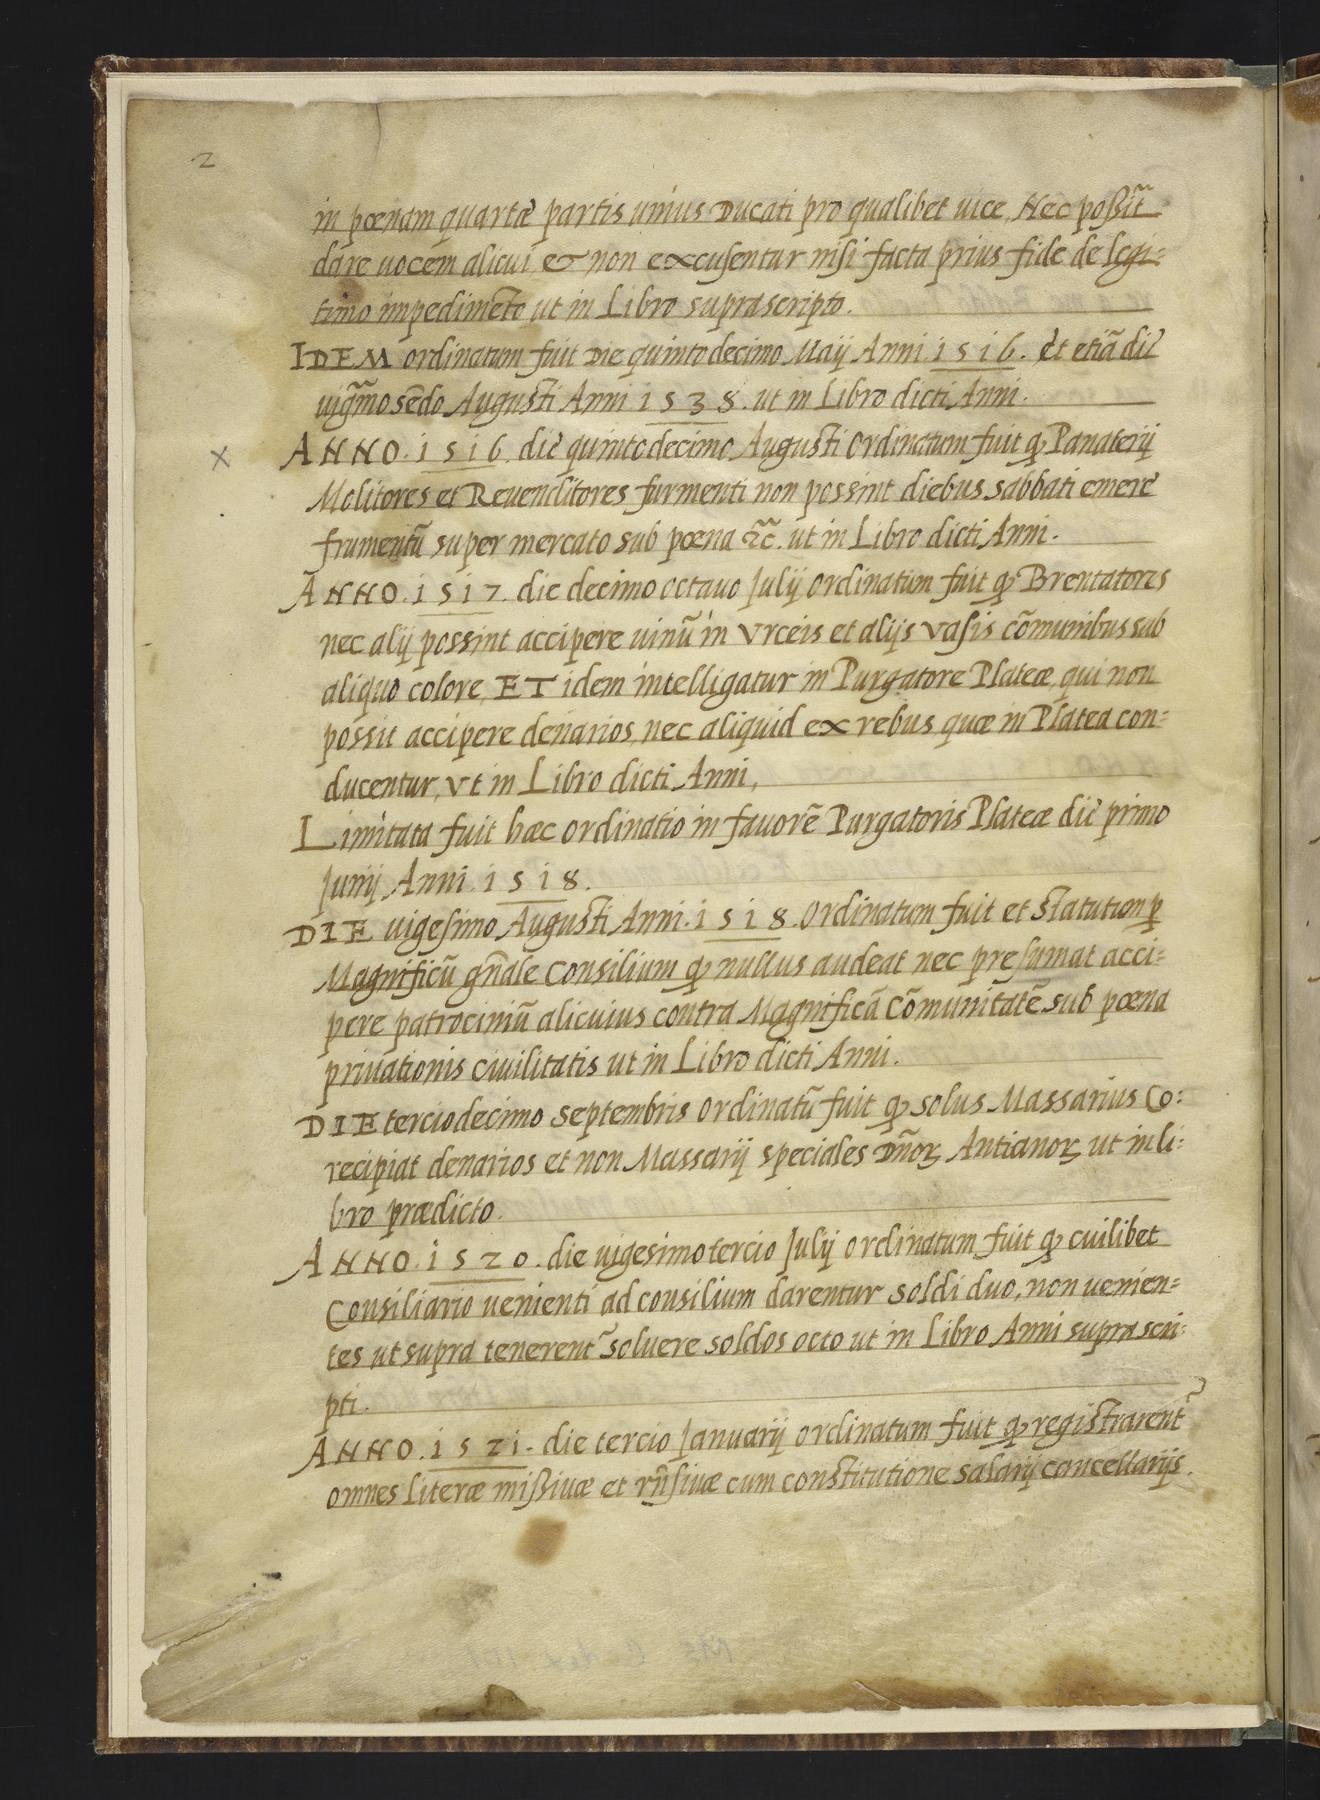 2
in pœnam quartæ partis unius Ducati pro qualibet uice, Nec poßĩt
dare uocem alicui & non excusentur nisi facta prius fide de legi-
timo impedimẽto ut in Libro suprascripto.
IDEM ordinatum fuit Die quintodecimo Maij Anni 1516. et etiã die
uigm̃o sẽdo Augusti Anni 1538. ut in Libro dicti Anni.
x ANNO. 1516. die quintodecimo Augusti Ordinatum fuit ꝙ Panaterij
Molitores et Reuenditores furmenti non possint diebus sabbati emere
frumentũ super mercato sub pœna &c̃. ut in Libro dicti Anni.
ANNO. 1517. die decimo octauo Julij Ordinatum fuit ꝙ Brentatores
nec alij possint accipere uinũ in Vrceis et alijs Vasis cõmunibus sub
aliquo colore, ET idem intelligatur in Purgatore Plateæ, qui non
possit accipere denarios, nec aliquid ex rebus quæ in Platea con-
ducentur, Vt in Libro dicti Anni,
Limitata fuit hæc ordinatio in fauorẽ Purgatoris Plateæ die primo
Junij Anni 1518.
DIE uigesimo Augusti Anni. 1518. Ordinatum fuit et Statutum ꝑ
Magnificũ gñale Consilium ꝙ nullus audeat nec presumat acci-
pere patrociniũ alicuius contra Magnificã Cõmunitatẽ sub pœna
priuationis ciuilitatis ut in Libro dicti Anni.
DIE terciodecimo Septembris Ordinatũ fuit ꝙ solus Massarius Co:
recipiat denarios et non Massarij speciales Dñoꝝ Antianoꝝ ut in li-
bro prædicto.
ANNO. 1520. die uigesimotercio Julij ordinatum fuit ꝙ cuilibet
Consiliario uenienti ad consilium darentur soldi duo, non uenien-
tes ut supra tenerent~ soluere soldos octo ut in Libro Anni suprascri-
pti.
ANNO. 1521. die tercio Januarij ordinatum fuit ꝙ registrarent~
omnes literæ mißiuæ et rñsiuæ cum constitutione salarij cancellarijs.